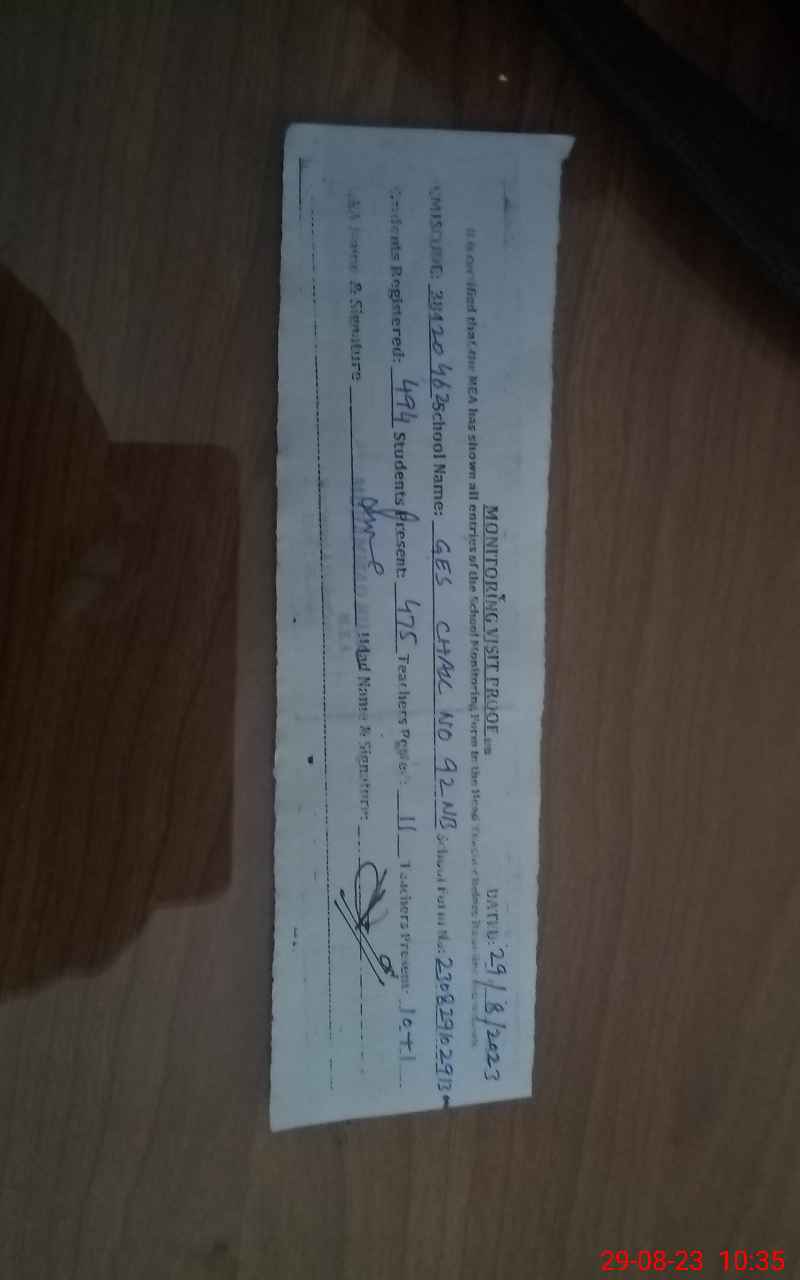 MONITORING VISIT PROOF
DATED: 29/8/2023
It is certified that the MEA has shown all entries of the School Monitoring Form to the Head
EMISCODE: School Name: GES CHAK NO 92 NB School Form No:
Students Registered: 494 Students Present: 475 Teachers 11 Teachers Present: 10+1
MEA Name & Signature Head Name & Signature:
29-08-23 10:35